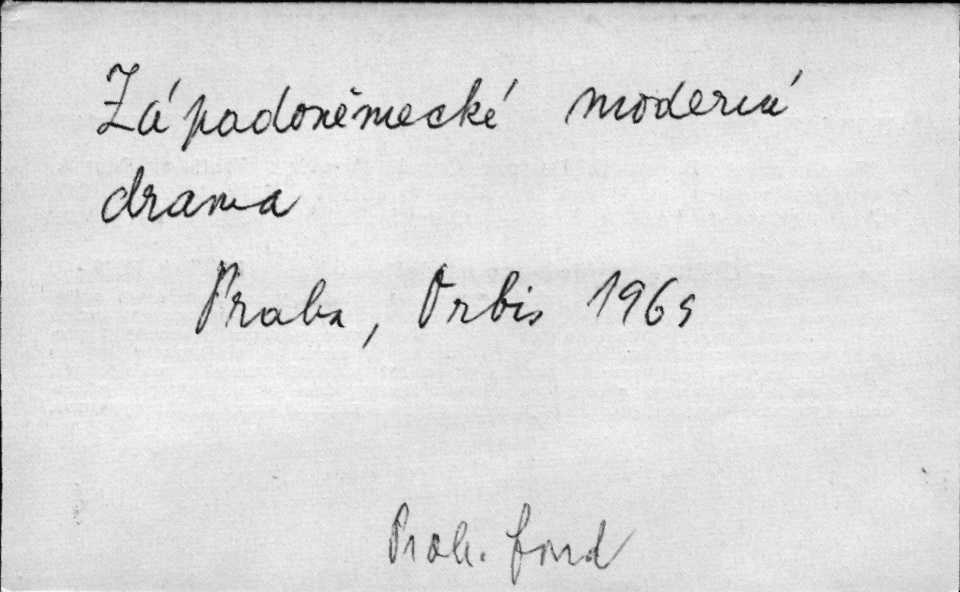 Západoněmecké moderní
drama
Praha, Orbis 1969
Proh. fond